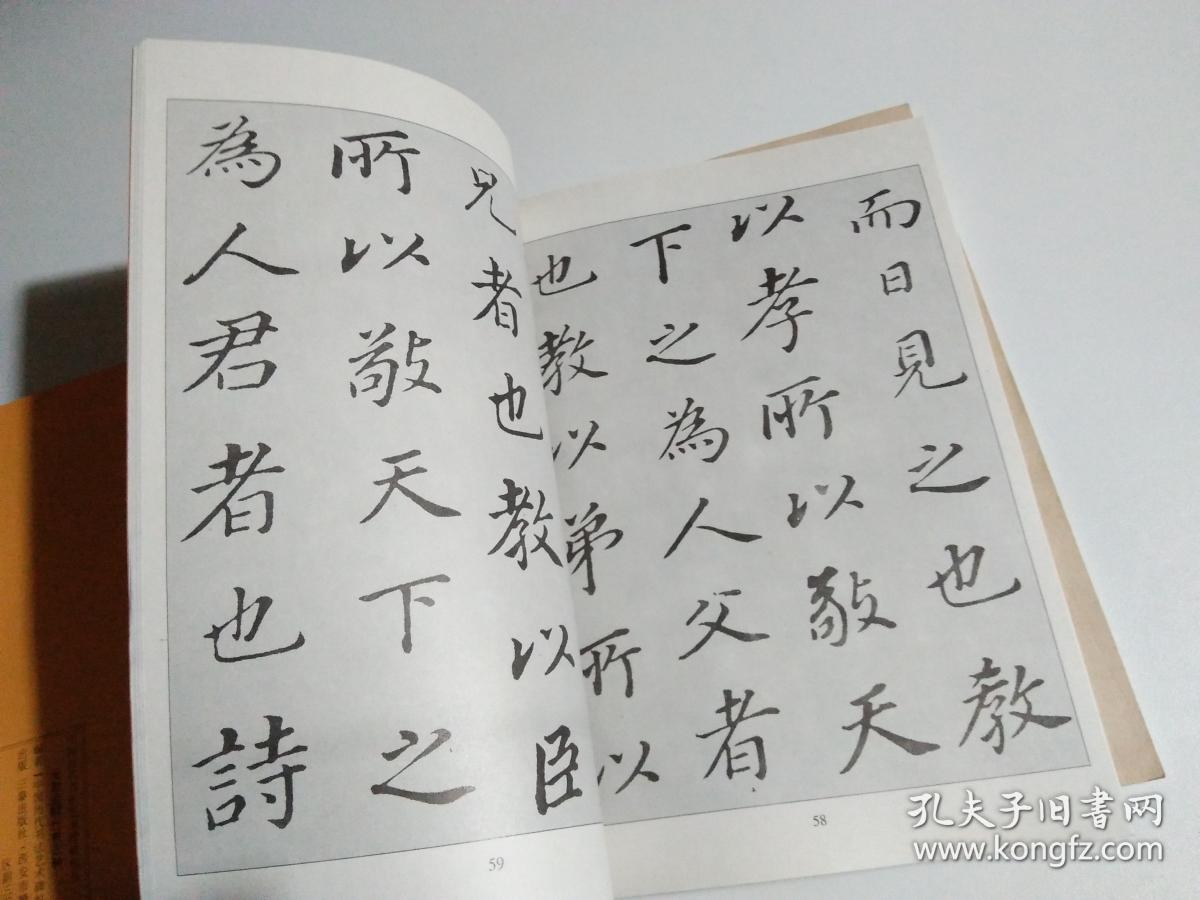 而日見之也教
以孝所以敬天
下之為人父者
也教以弟所以
58
兄者也教以臣
所以敬天下之
為人君者也詩
59
出版 三秦出版社
孔夫子旧书网
www.kongfz.com